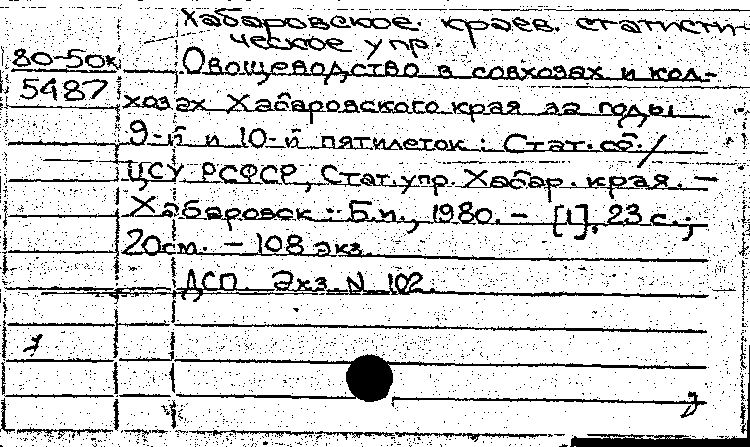 Хабаровское краев. статисти-
ческое упр.
80-50к Овощеводство в совхозах и кол-
5487 хозах Хабаровского края за годы
9-й и 10-й пятилеток : Стат. сб. /
ЦСУ РСФСР, Стат. упр. Хабар. края. –
Хабаровск : Б.и., 1980. – [1], 23 с.;
20см. – 108 экз.
ДСП. Экз. N 102.